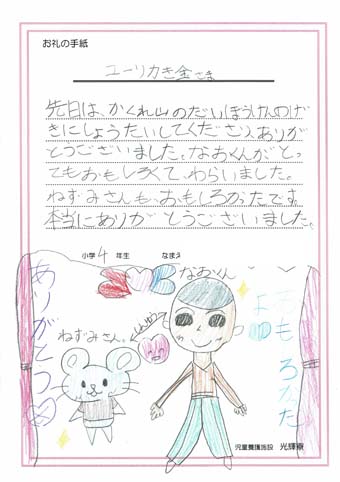 お礼の手紙
ユーリカき金さま
先日は、かくれ山のだいぼうけんのげ
きにしょうたいしてくださり、ありが
とうございました。なおくんが、とっ
てもおもしろくて、わらいました。
ねずみさんも、おもしろかったです。
本当にありがとうございました。
小学4年生 なまえ
ありがとう
なおくん
おもしろかった
よ
ねずみさん。
児童養護施設 光輝寮